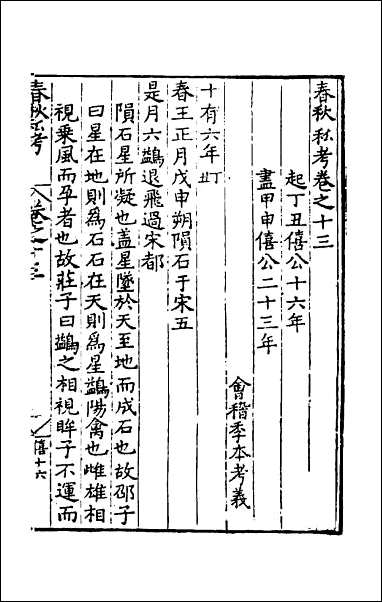 春秋私考卷之十三
起丁丑僖公十六年
盡甲申僖公二十三年
會稽季本考義
十有六年丁丑
春王正月戊申朔隕石于宋五
是月六鷁退飛過宋都
隕石星所凝也盖星墜於天至地而成石也故邵子
曰星在地則爲石石在天則爲星鷁陽禽也雌雄相
視乗風而孕者也故莊子曰鷁之相視眸子不運而
春秋私考
卷之十三
僖十六